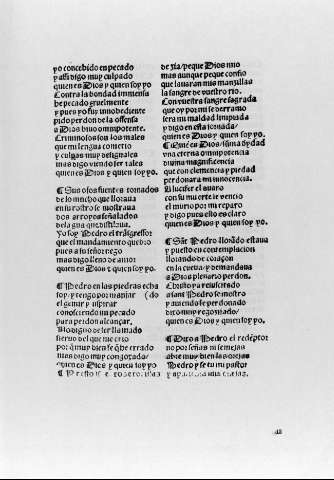 yo concebido en pecado
y assi digo muy culpado
quien es Dios y quien soy yo
Contra la bondad immensa
he pecado cruelmente
y pues yo fuy inobediente
pido perdon de la offensa
a Dios biuo omnipotente.
Criminosos son los males
que mi lengua cometio
y culpas muy desiguales
mas digo viendo ser tales
quien es Dios y quien soy yo.
¶ Sus ojos fuentes tornados
de lo mucho que lloraua
en su rostro se mostraua
dos arroyos señalados
del agua que distilaua.
Yo soy Pedro el trãsgressor
que el mandamiento quebro
pues a su señor nego
mas digo lleno de amor
quien es Dios y quien soy yo.
¶ Pedro en las piedras echa
soy y tengo por manjar (do
el gemir y sospirar
conosciendo un pecado
para perdon alcançar.
No digno de ser llamado
sieruo del que me crio
por q̃ muy bien se q̃ he errado
mas digo muy congoxado
quien es Dios y quien soy yo
de mi a / pequè Dios mio
mas aunque peque confio
que lauaran mis manzillas
la sangre de vuestro rio.
Con vuestra sangre sagrada
que oy por mi se derramo
sera mi maldad limpiada
y digo en esta jornada
quien es Dios y quien soy yo.
¶ Quiẽ es Dios / suma bõdad
vna eterna omnipotencia
diuina magnificencia
que con clemencia y piedad
perdonara mi innocencia.
A lucifer el auaro
con su muerte le vencio
el murio por mi reparo
y digo pues esto es claro
quien es Dios y quien soy yo.
¶ Sãt Pedro llorãdo estaua
y puesto en contemplacion
llorando de coraçon
en la cueua / y demandaua
a Dios plenario perdon.
Christo ya resuscitado
a sant Pedro se mostro
y auiendole perdonado
dixo muy regozijado
quien es Dios y quien soy yo.
¶ Dixo a Pedro el redẽptor
no por señas ni semejas
abre muy bien las orejas
Pedro y se tu mi pastor